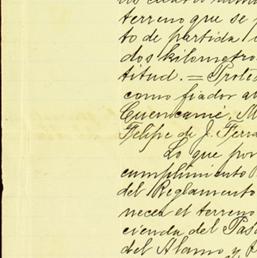 terreno que se p
to de partida
dos kilometro
titud. = Prote
como fiador a
Cuencamé, M
Felipe de J. Ferra
Lo que por
cumplimiento
del Reglamento
necen el terreno
cienda del Pas
del Alamo y